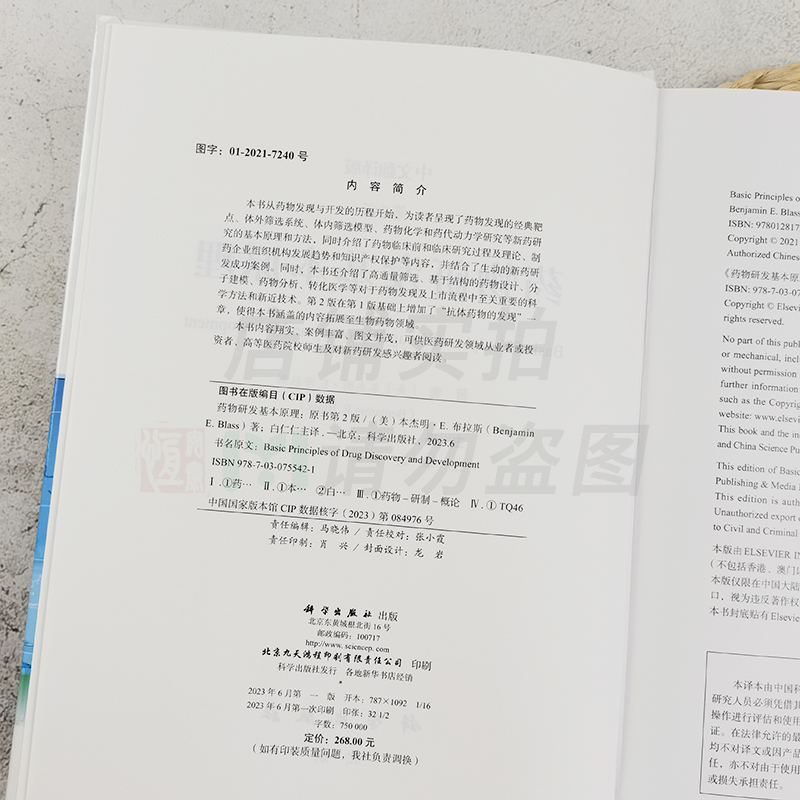 图字：01-2021-7240 号
内 容 简 介
本书从药物发现与开发的历程开始，为读者呈现了药物发现的经典靶
点、体外筛选系统、体内筛选模型、药物化学和药代动力学研究等新药研
究的基本原理和方法，同时介绍了药物临床前和临床研究过程及理论、制
药企业组织机构发展趋势和知识产权保护等内容，并结合了生动的新药研
发成功案例。同时，本书还介绍了高通量筛选、基于结构的药物设计、分
子建模、药物分析、转化医学等对于药物发现及上市流程中至关重要的科
学方法和新近技术。第 2 版在第 1 版基础上增加了“抗体药物的发现”一
章，使得本书涵盖的内容拓展至生物药物领域。
本书内容翔实、案例丰富、图文并茂，可供医药研发领域从业者或投
资者、高等医药院校师生及对新药研发感兴趣者阅读。
图书在版编目（CIP）数据
药物研发基本原理：原书第 2 版 /（美）本杰明·E. 布拉斯（Benjamin
E. Blass）著；白仁仁主译. —北京：科学出版社，2023.6
书名原文：Basic Principles of Drug Discovery and Development
ISBN 978-7-03-075542-1
Ⅰ . ①药… Ⅱ . ①本… ②白… Ⅲ . ①药物－研制－概论 Ⅳ . ① TQ46
中国国家版本馆 CIP 数据核字（2023）第 084976 号
责任编辑：马晓伟 / 责任校对：张小霞
责任印制：肖 兴 / 封面设计：龙 岩
科学出版社 出版
北京东黄城根北街 16 号
邮政编码：100717
http://www.sciencep.com
北京九天鸿程印刷有限责任公司 印刷
科学出版社发行 各地新华书店经销
*
2023 年 6 月第 一 版 开本：787×1092 1/16
2023 年 6 月第一次印刷 印张：32 1/2
字数：750 000
定价：268.00 元
（如有印装质量问题，我社负责调换）
店铺实拍
请勿盗图
Basic Principles of
Benjamin E. Blass
ISBN: 97801281
Copyright © 2021
Authorized Chines
《药物研发基本原
ISBN: 978-7-03-07
Copyright © Elsev
rights reserved.
No part of this publ
or mechanical, inclu
without permission
further information
such as the Copyrig
website: www.elsevi
This book and the in
and China Science Pu
This edition of Basic
Publishing & Media
This edition is autho
Unauthorized export o
to Civil and Criminal
本版由 ELSEVIER IN
（不包括香港、澳门
本版仅限在中国大陆
口，视为违反著作权
本书封底贴有 Elsevie
本译本由中国科
研究人员必须凭借其
操作进行评估和使用
证。在法律允许的最
均不对译文或因产品
任，亦不对由于使用
或损失承担责任。